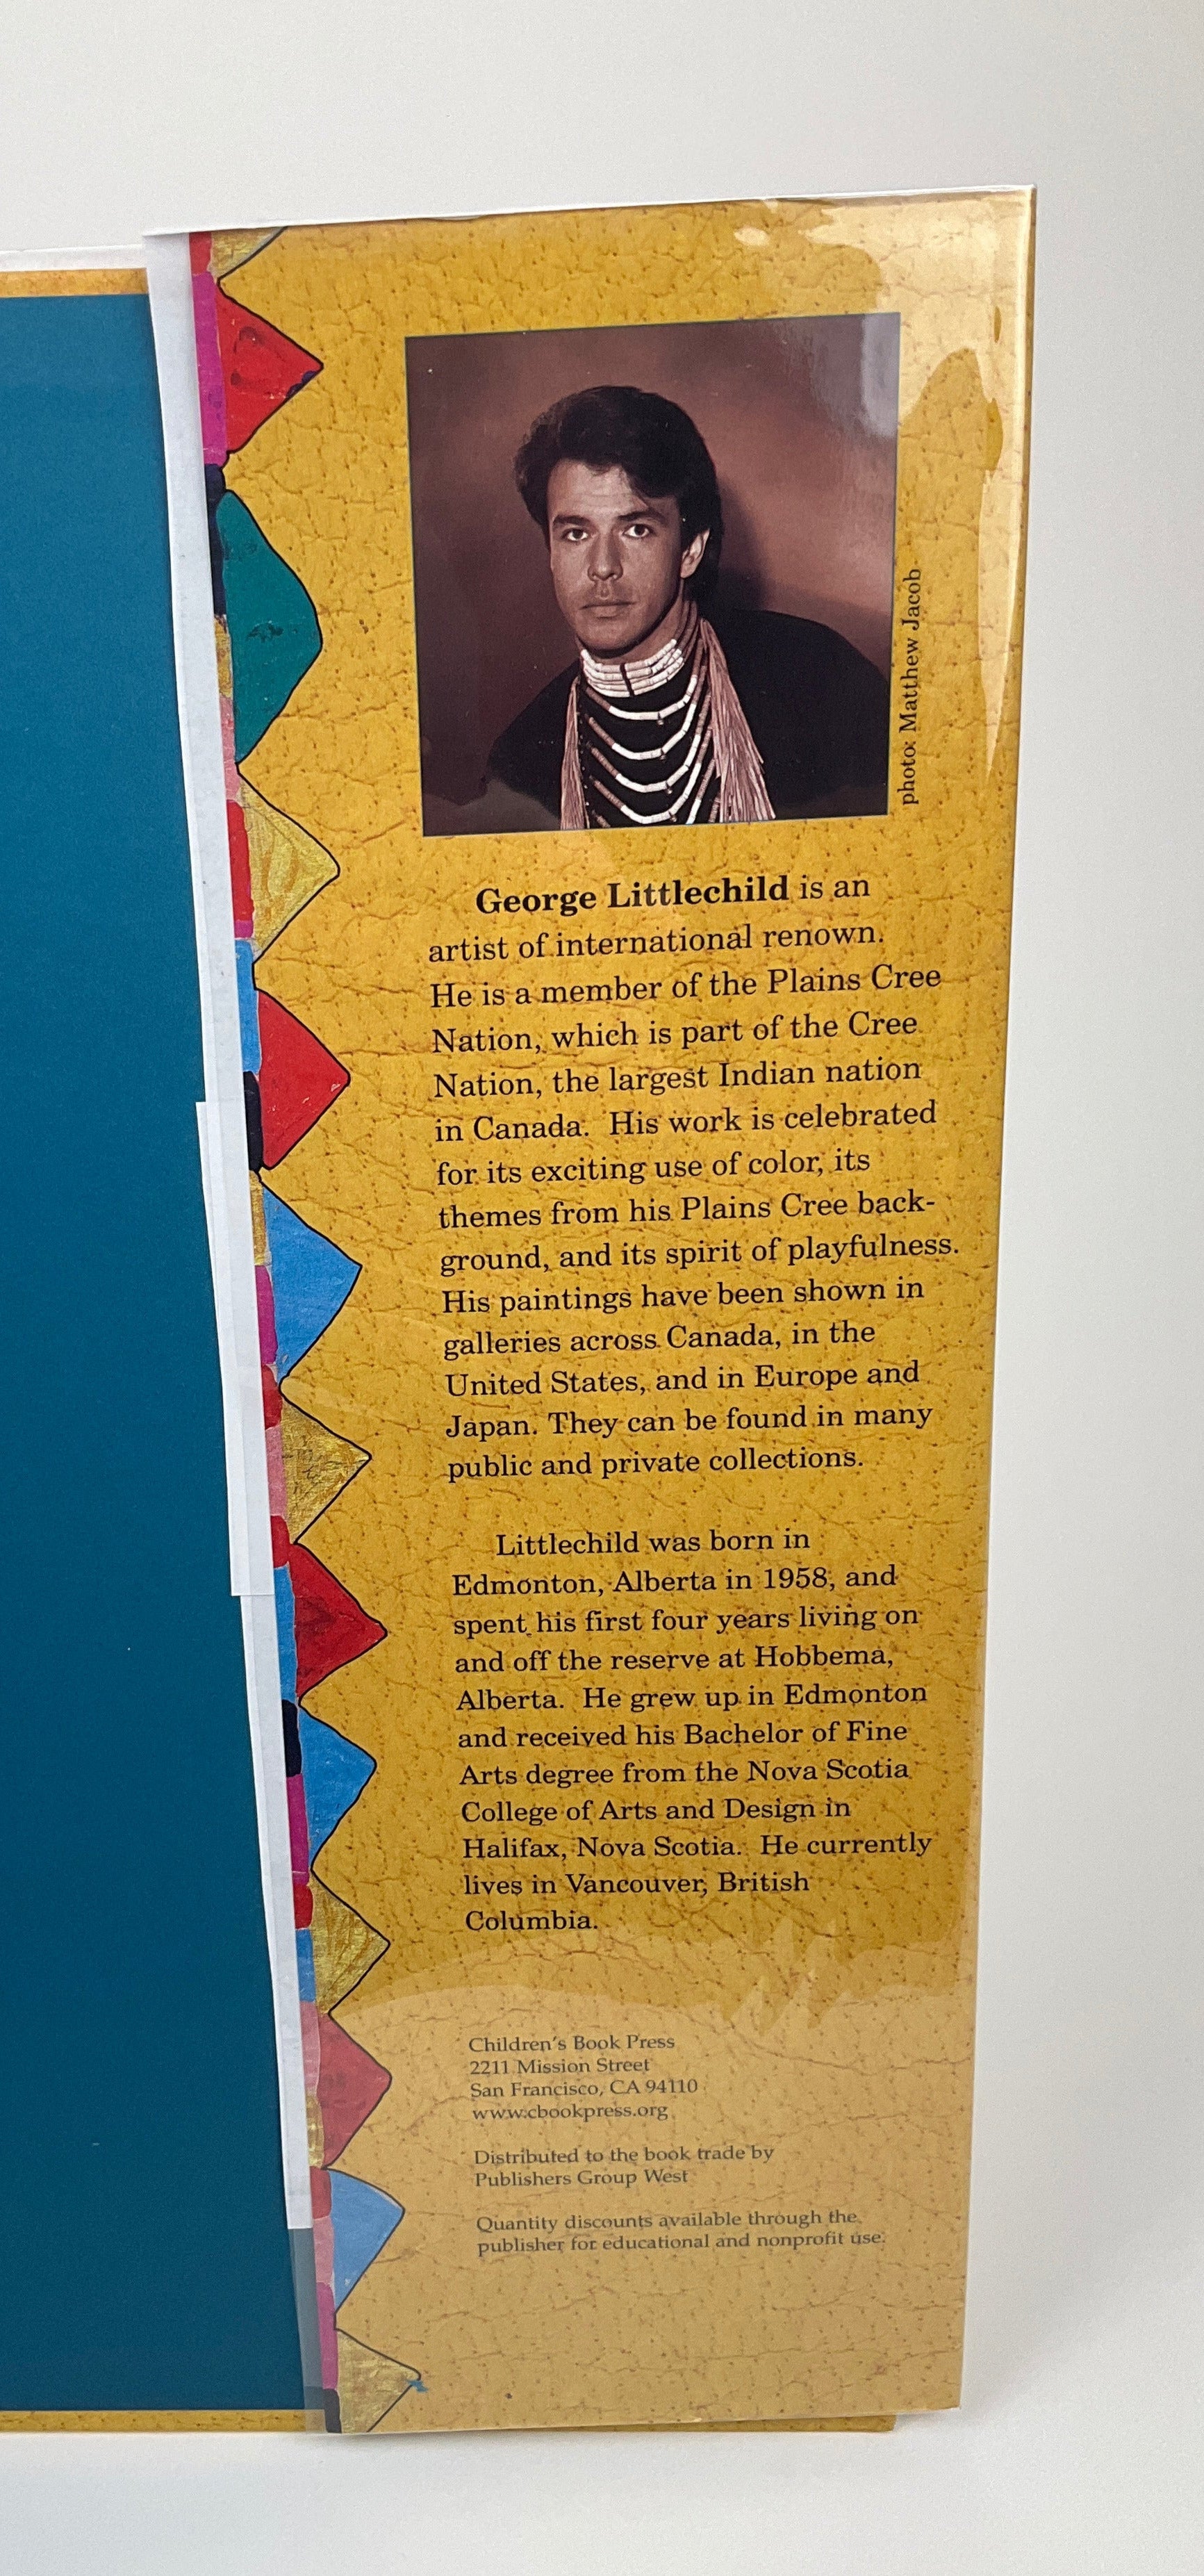 photo: Matthew Jacob
George Littlechild is an
artist of international renown.
He is a member of the Plains Cree
Nation, which is part of the Cree
Nation, the largest Indian nation
in Canada. His work is celebrated
for its exciting use of color, its
themes from his Plains Cree back-
ground, and its spirit of playfulness.
His paintings have been shown in
galleries across Canada, in the
United States, and in Europe and
Japan. They can be found in many
public and private collections.
Littlechild was born in
Edmonton, Alberta in 1958, and
spent his first four years living on
and off the reserve at Hobbema,
Alberta. He grew up in Edmonton
and received his Bachelor of Fine
Arts degree from the Nova Scotia
College of Arts and Design in
Halifax, Nova Scotia. He currently
lives in Vancouver, British
Columbia.
Children's Book Press
2211 Mission Street
San Francisco, CA 94110
www.cbookpress.org
Distributed to the book trade by
Publishers Group West
Quantity discounts available through the
publisher for educational and nonprofit use.